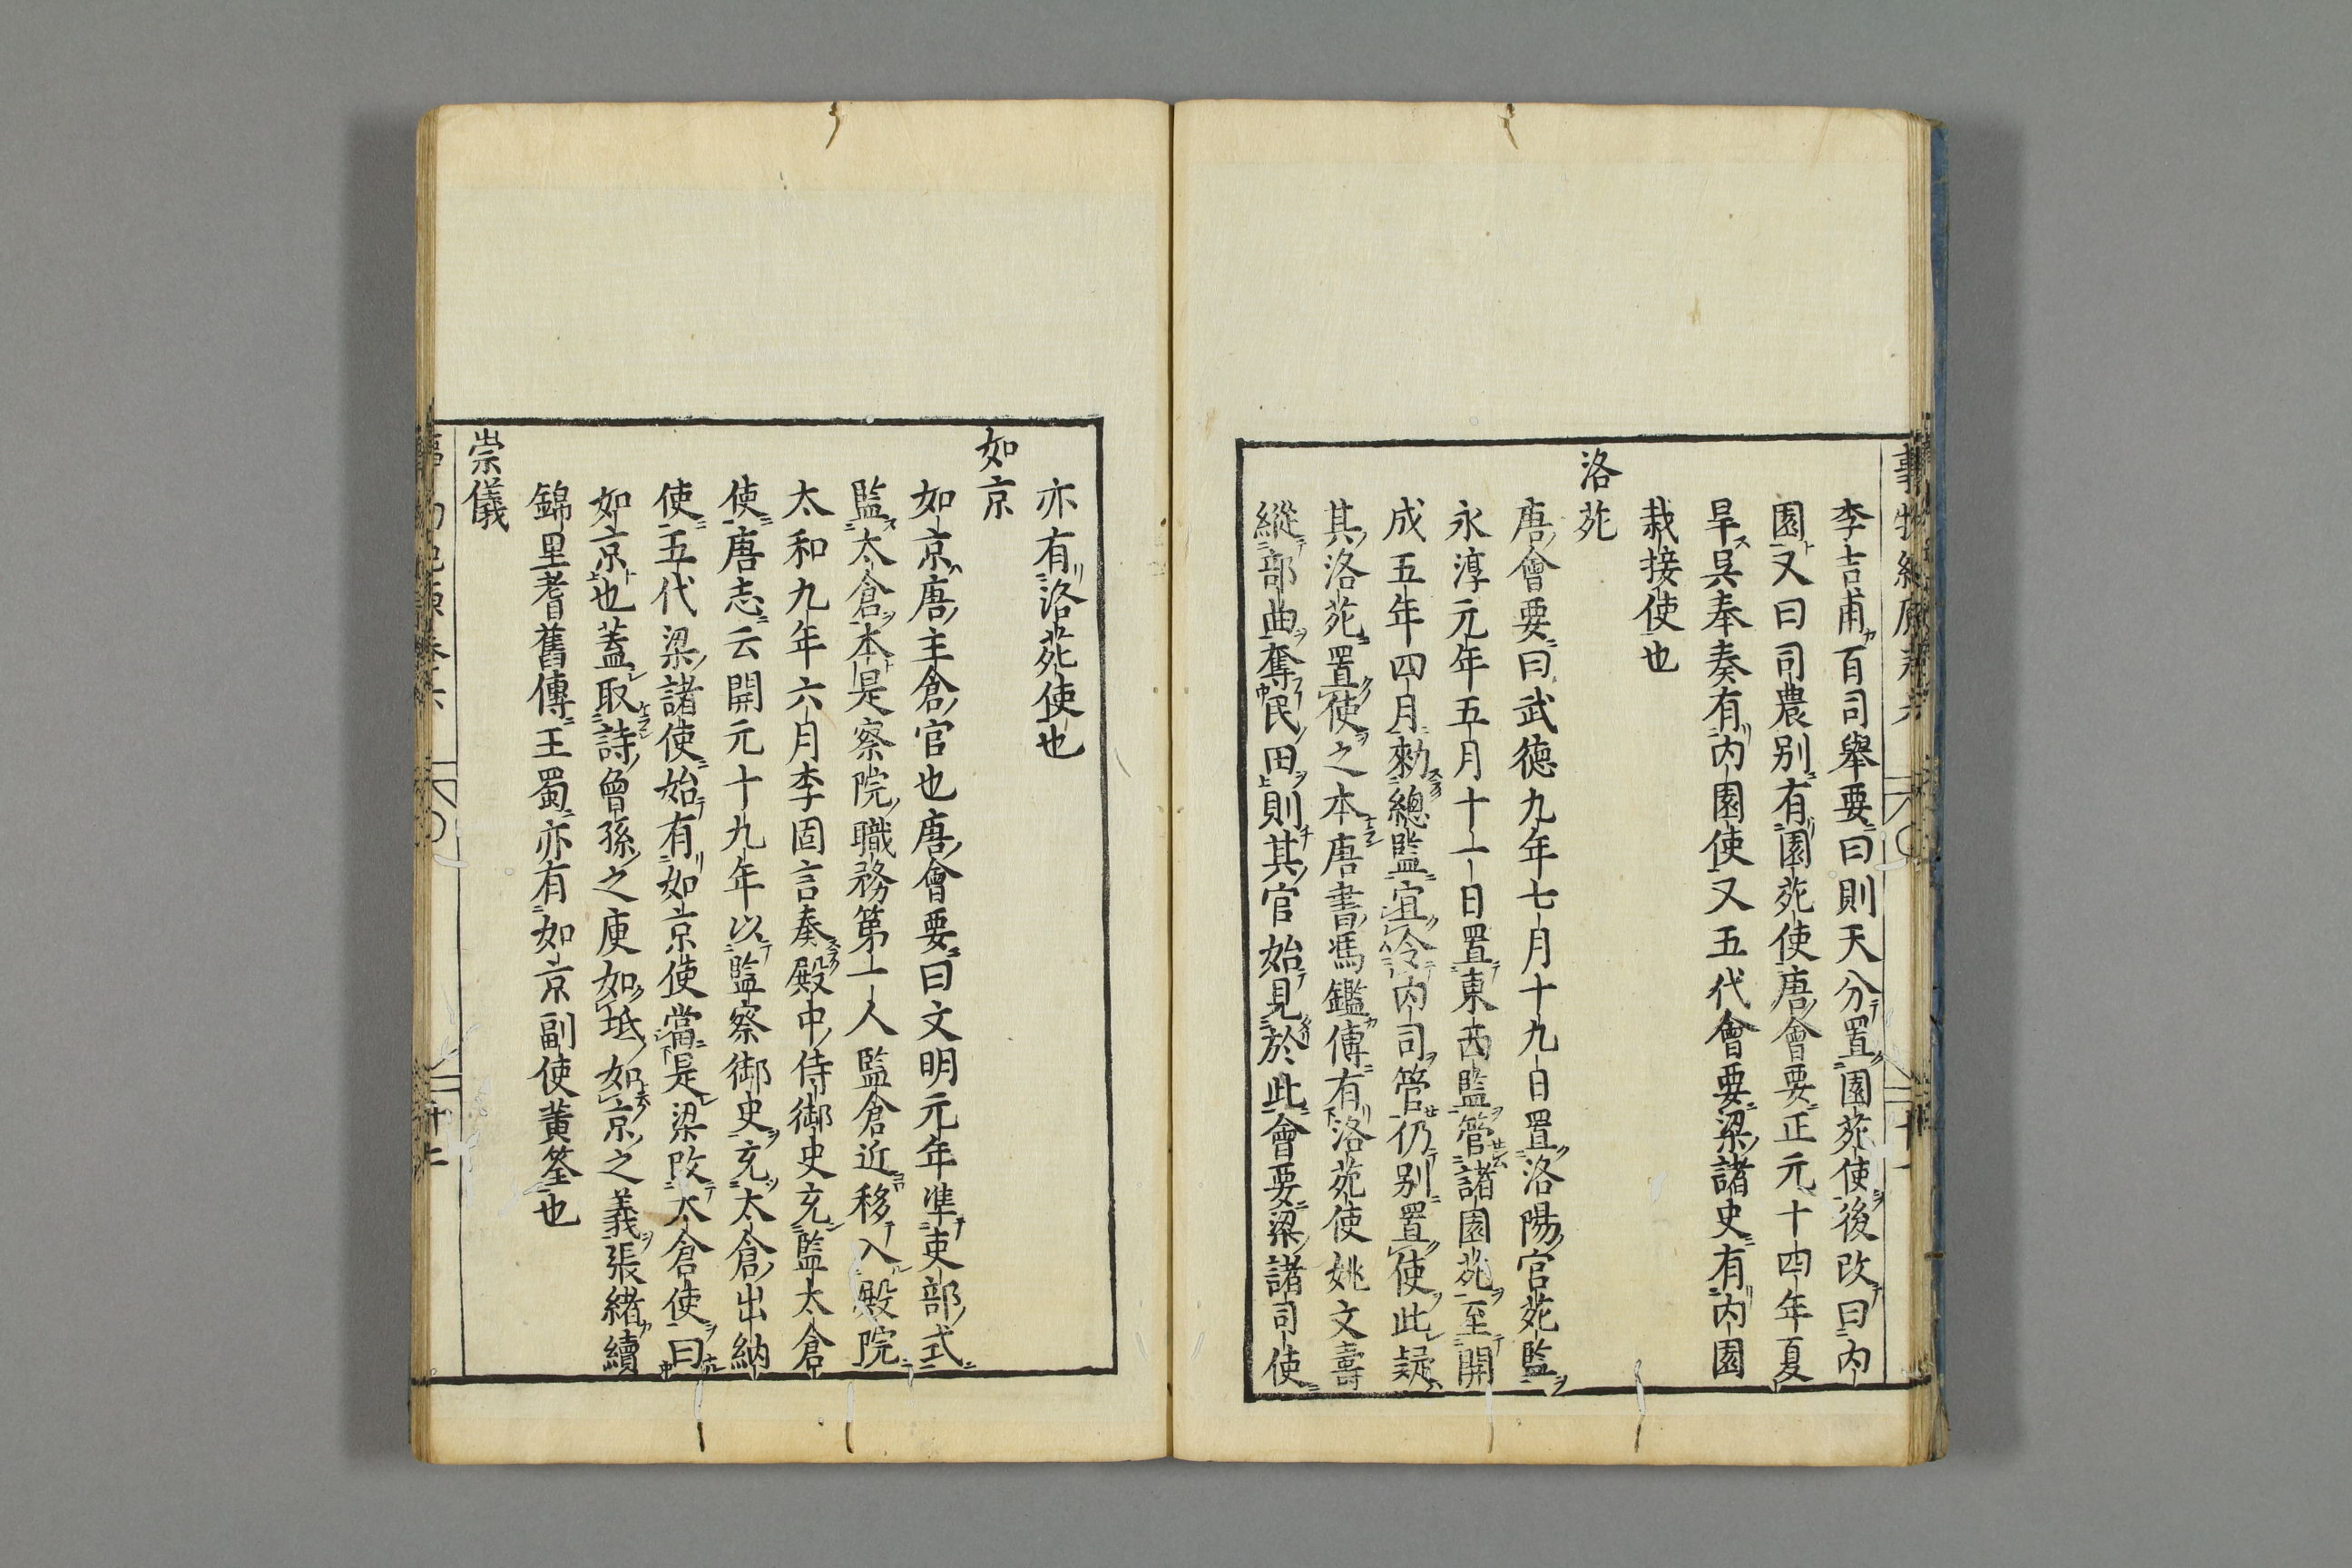 李吉甫百司舉要曰則天分置園苑使後改曰內
園又曰司農別有園苑使唐會要正元十四年夏
旱吳奉奏有內園使又五代會要梁諸史有內園
栽接使也
洛苑
唐會要曰武德九年七月十九日置洛陽宮苑監
永淳元年五月十一日置東西監管諸園苑至開
成五年四月勅總監宜令內司管仍別置使此疑
其洛苑置使之本唐書馮鑑傳有洛苑使姚文壽
縱部曲奪民田則其官始見於此會要梁諸司使
亦有洛苑使也
如京
如京唐主倉官也唐會要曰文明元年準吏部式
監太倉本是察院職務第一人監倉近移入殿院
太和九年六月李固言奏殿中侍御史充監太倉
使唐志云開元十九年以監察御史充太倉出納
使五代梁諸使始有如京使當是梁改太倉使曰
如京也蓋取詩曾孫之庾如坻如京之義張緒續
錦里耆舊傳王蜀亦有如京副使黃筌也
崇儀